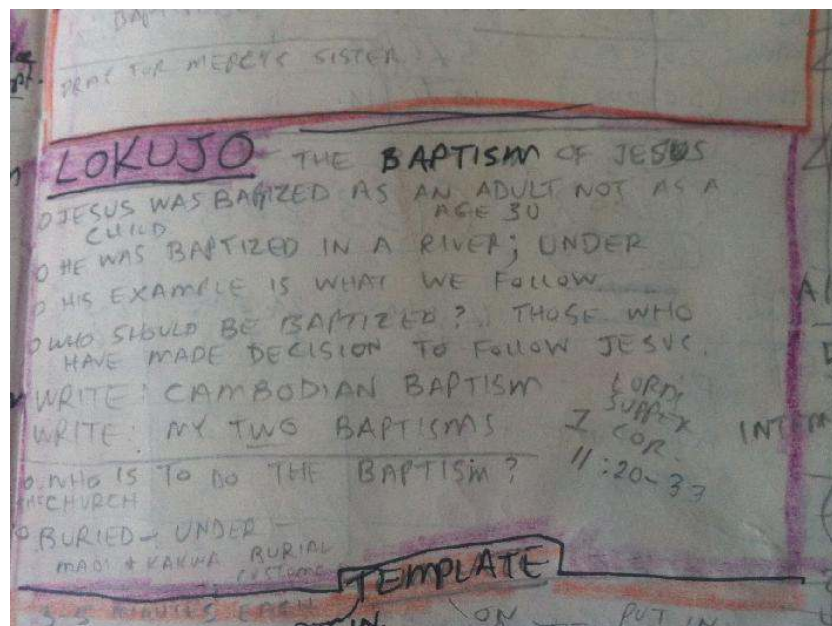 PRAY FOR MERCY'S SISTER
LOKUJO - THE BAPTISM OF JESUS
O JESUS WAS BAPTIZED AS AN ADULT NOT AS A
CHILD AGE 30
O HE WAS BAPTIZED IN A RIVER; UNDER
O HIS EXAMPLE IS WHAT WE FOLLOW
O WHO SHOULD BE BAPTIZED? THOSE WHO
HAVE MADE DECISION TO FOLLOW JESUS.
WRITE: CAMBODIAN BAPTISM
WRITE: MY TWO BAPTISMS
LORD
SUPPER
I COR.
11:20-33
O WHO IS TO DO THE BAPTISM?
THE CHURCH
O BURIED - UNDER -
MADI & KAKWA BURIAL
CUSTOMS
TEMPLATE
3-5 MINUTES EACH
IN ON PUT IN